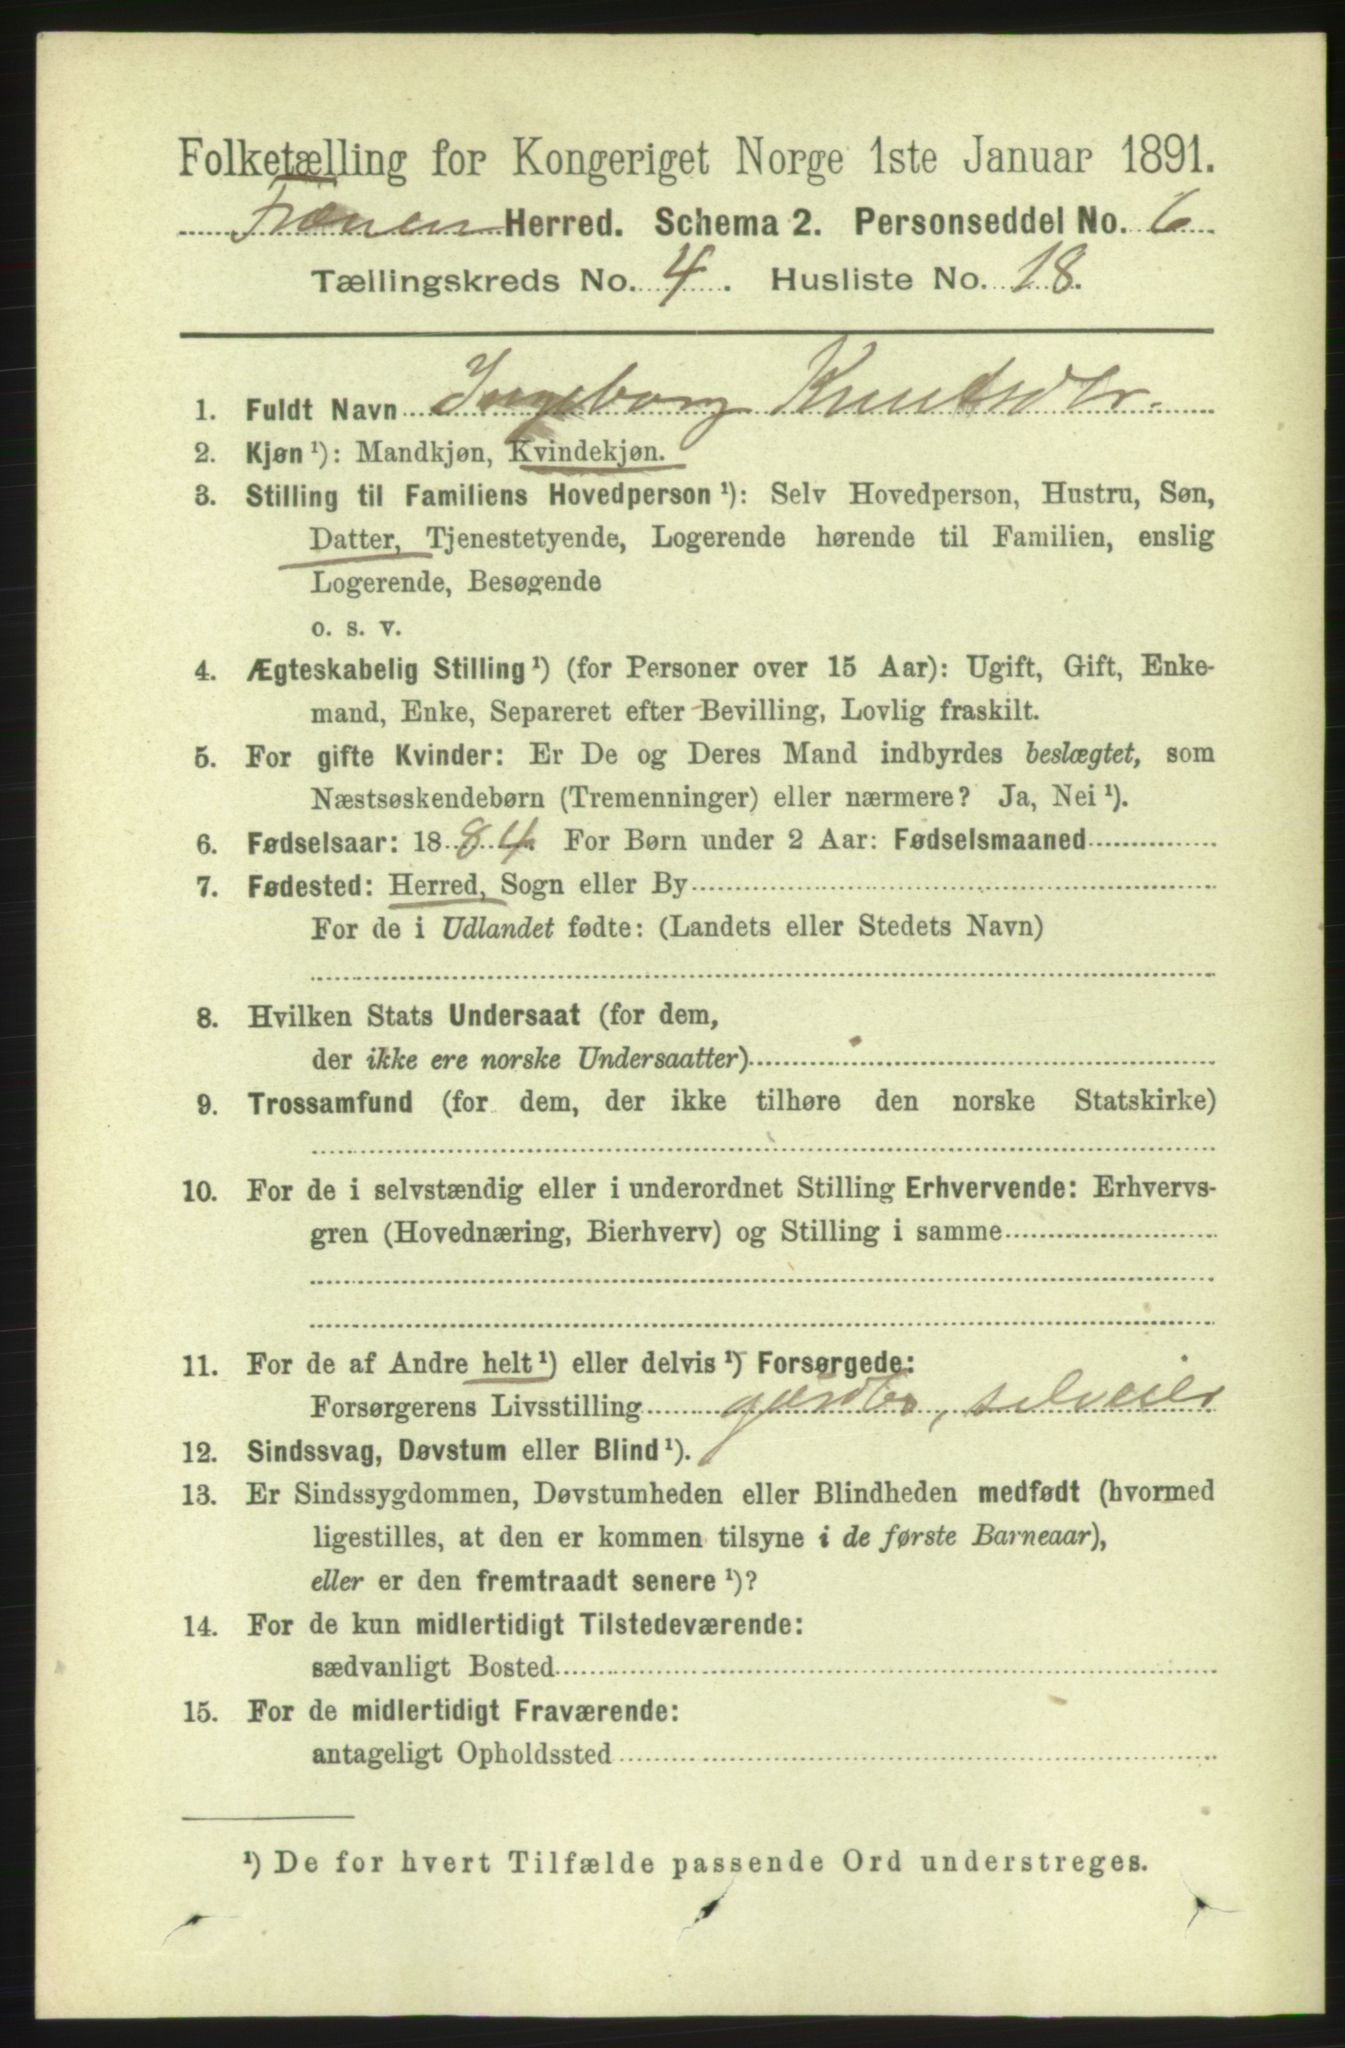 Folketælling for Kongeriget Norge 1ste Januar 1891.
Frænen Herred. Schema 2. Personseddel No. 6
Tællingskreds No. 4. Husliste No. 18.
1. Fuldt Navn Ingeborg Knutsdtr.
2. Kjøn ¹): Mandkjøn, Kvindekjøn.
3. Stilling til Familiens Hovedperson ¹): Selv Hovedperson, Hustru, Søn,
Datter, Tjenestetyende, Logerende hørende til Familien, enslig
Logerende, Besøgende
o. s. v.
4. Ægteskabelig Stilling ¹) (for Personer over 15 Aar): Ugift, Gift, Enke-
mand, Enke, Separeret efter Bevilling, Lovlig fraskilt.
5. For gifte Kvinder: Er De og Deres Mand indbyrdes beslægtet, som
Næstsøskendebørn (Tremenninger) eller nærmere? Ja, Nei ¹).
6. Fødselsaar: 1884. For Børn under 2 Aar: Fødselsmaaned
7. Fødested: Herred, Sogn eller By
For de i Udlandet fødte: (Landets eller Stedets Navn)
8. Hvilken Stats Undersaat (for dem,
der ikke ere norske Undersaatter)
9. Trossamfund (for dem, der ikke tilhøre den norske Statskirke)
10. For de i selvstændig eller i underordnet Stilling Erhvervende: Erhvervs-
gren (Hovednæring, Bierhverv) og Stilling i samme
11. For de af Andre helt ¹) eller delvis ¹) Forsørgede:
Forsørgerens Livsstilling gårdbr, selveier
12. Sindssvag, Døvstum eller Blind ¹).
13. Er Sindssygdommen, Døvstumheden eller Blindheden medfødt (hvormed
ligestilles, at den er kommen tilsyne i de første Barneaar),
eller er den fremtraadt senere ¹)?
14. For de kun midlertidigt Tilstedeværende:
sædvanligt Bosted
15. For de midlertidigt Fraværende:
antageligt Opholdssted
¹) De for hvert Tilfælde passende Ord understreges.